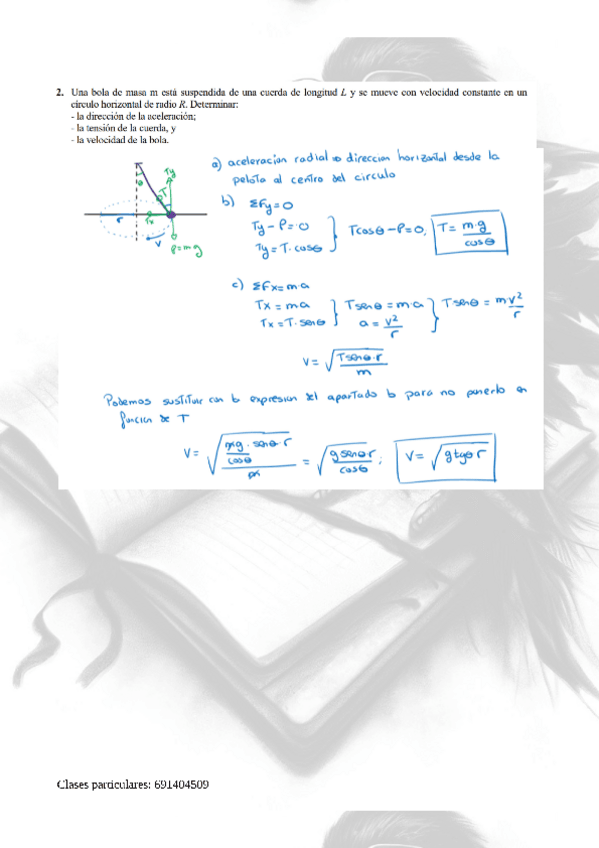 2. Una bola de masa m está suspendida de una cuerda de longitud L y se mueve con velocidad constante en un
círculo horizontal de radio R. Determinar:
- la dirección de la aceleración;
- la tensión de la cuerda, y
- la velocidad de la bola.
a) aceleracion radial ⇒ direccion horizontal desde la
pelota al centro del circulo
θ
Ty
T
Tx
r
v
P=mg
b) ΣFy=0
Ty-P=0
Ty=T·cosθ
Tcosθ-P=0, T= m·g/cosθ
c) ΣFx=ma
Tx=ma
Tx=T·senθ
Tsenθ=m·a
a=v²/r
Tsenθ=m v²/r
v=√(Tsenθ·r/m)
Podemos sustituir con la expresion del apartado b para no ponerlo en
funcion de T
v=√((mg/cosθ)·senθ·r/m) = √(g senθ r/cosθ); v=√(g tgθ r)
Clases particulares: 691404509